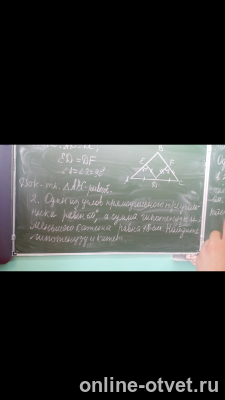 ED = DF
Док-ть: △ABC-равноб.
2. Один из углов прямоугольного треуголь-
ника равен 60°, а сумма гипотенузы и
меньшего катета равна 18 см. Найдите
гипотенузу и катет.
B
E F
A D C
online-otvet.ru